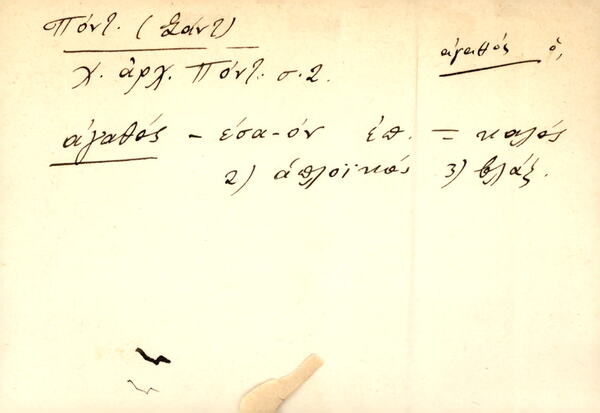 Πόντ. (Σάντ)
ἀγαθός ὁ,
χ. ἀρχ. Πόντ. σ. 2.
ἀγαθός - έσα-όν ἐπ. = καλός
2) ἁπλοϊκός 3) βλάξ.